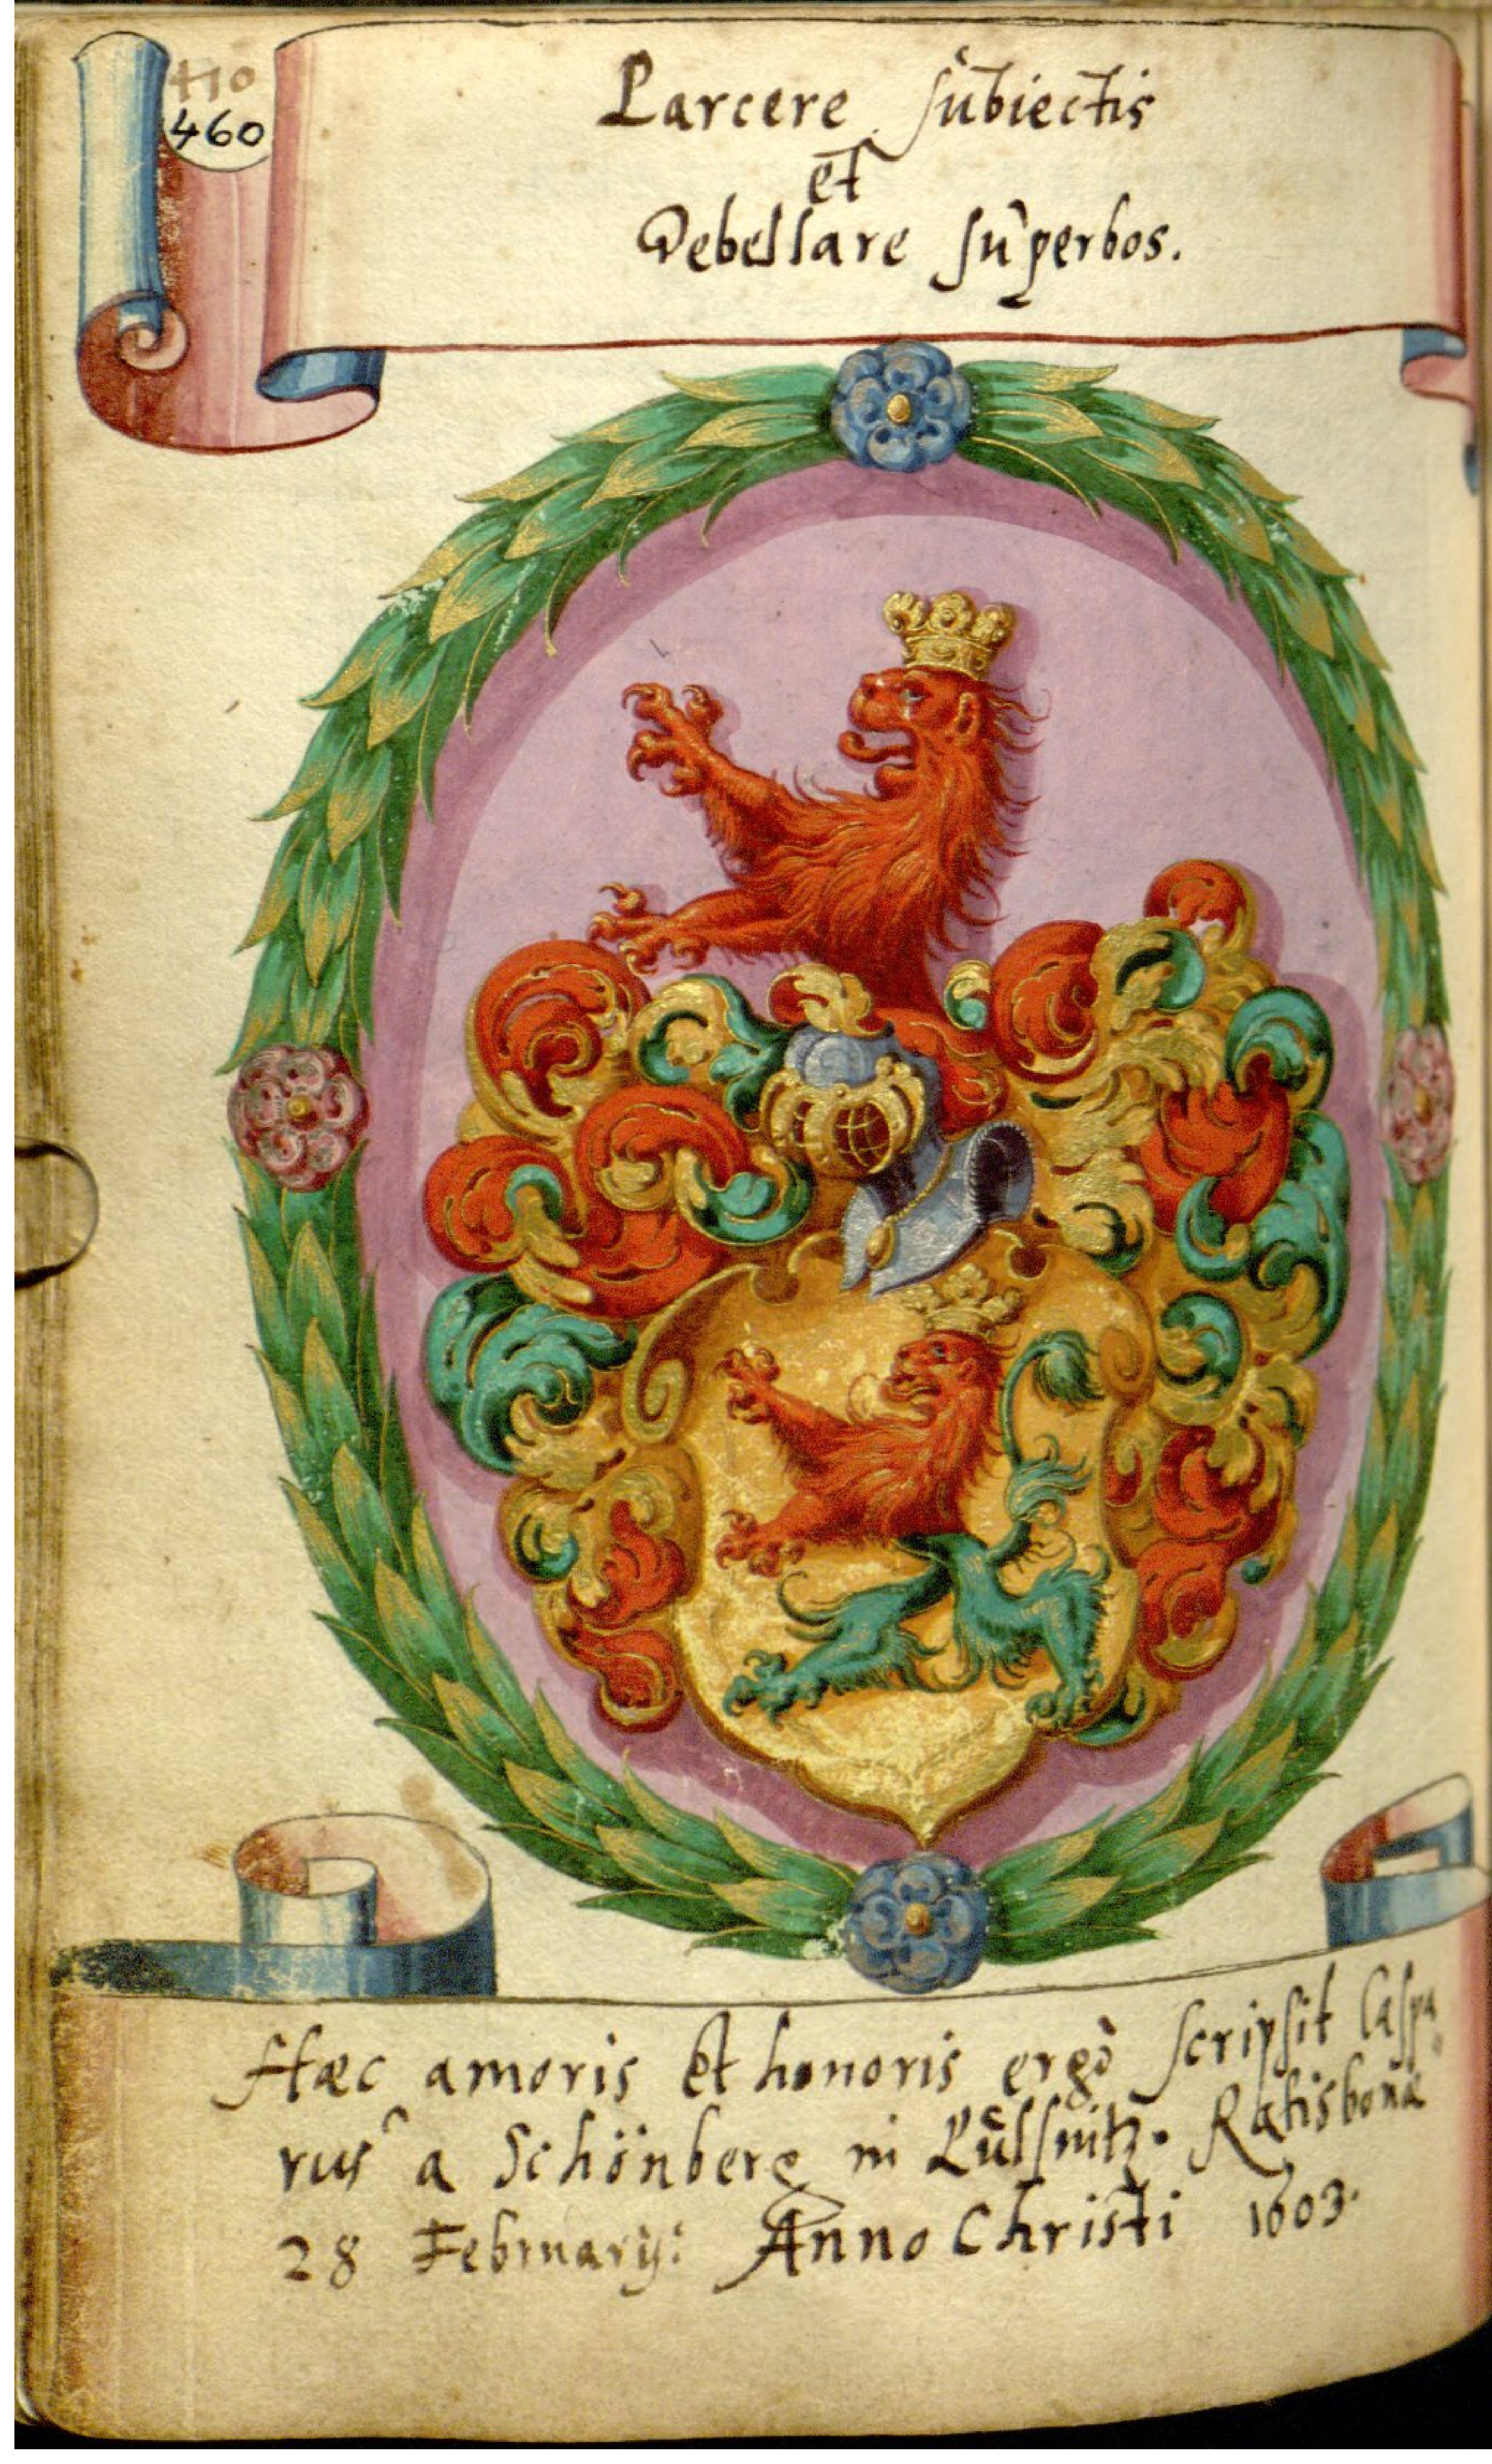 410
460
Parcere subiectis
et
Debellare superbos.
Hæc amoris et honoris ergò scripsit Caspa
rus a Schönberg in Pulsnitz. Ratisbonæ
28 Februarij: Anno Christi 1603.